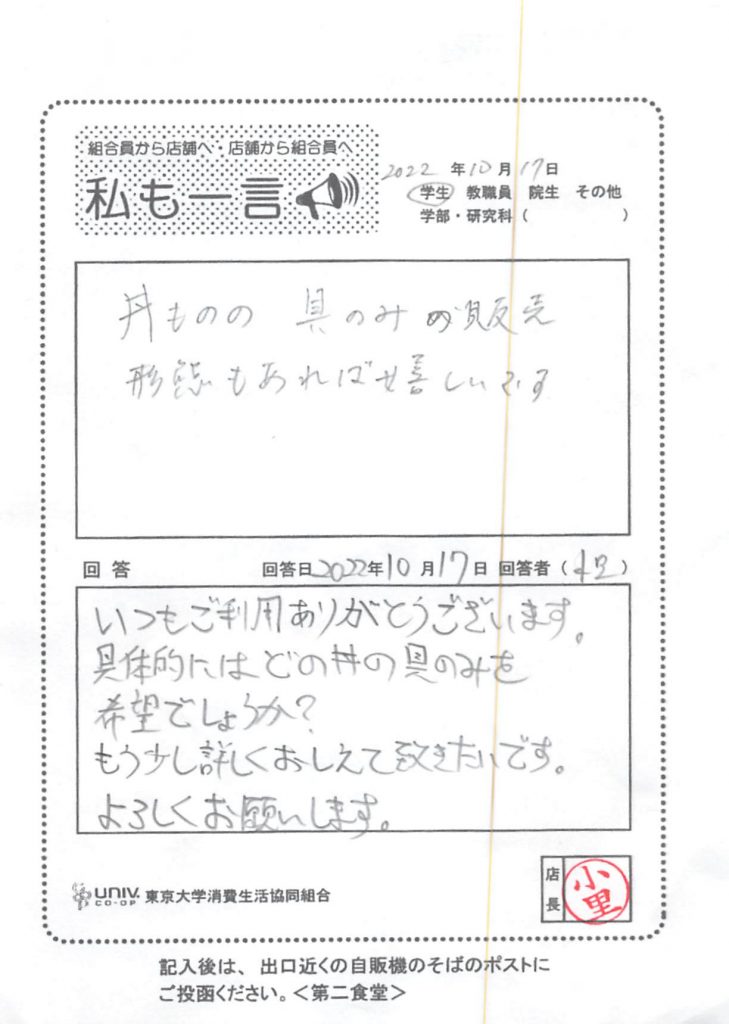 組合員から店舗へ・店舗から組合員へ
私も一言
2022年10月17日
学生 教職員 院生 その他
学部・研究科（　　　）
丼ものの 具のみの販売
形態もあれば嬉しいです
回答 回答日2022年10月17日 回答者（小里）
いつもご利用ありがとうございます。
具体的にはどの丼の具のみを
希望でしょうか?
もう少し詳しくおしえて致きたいです。
よろしくお願いします。
UNIV. CO-OP 東京大学消費生活協同組合
店長 小里
記入後は、出口近くの自販機のそばのポストに
ご投函ください。＜第二食堂＞